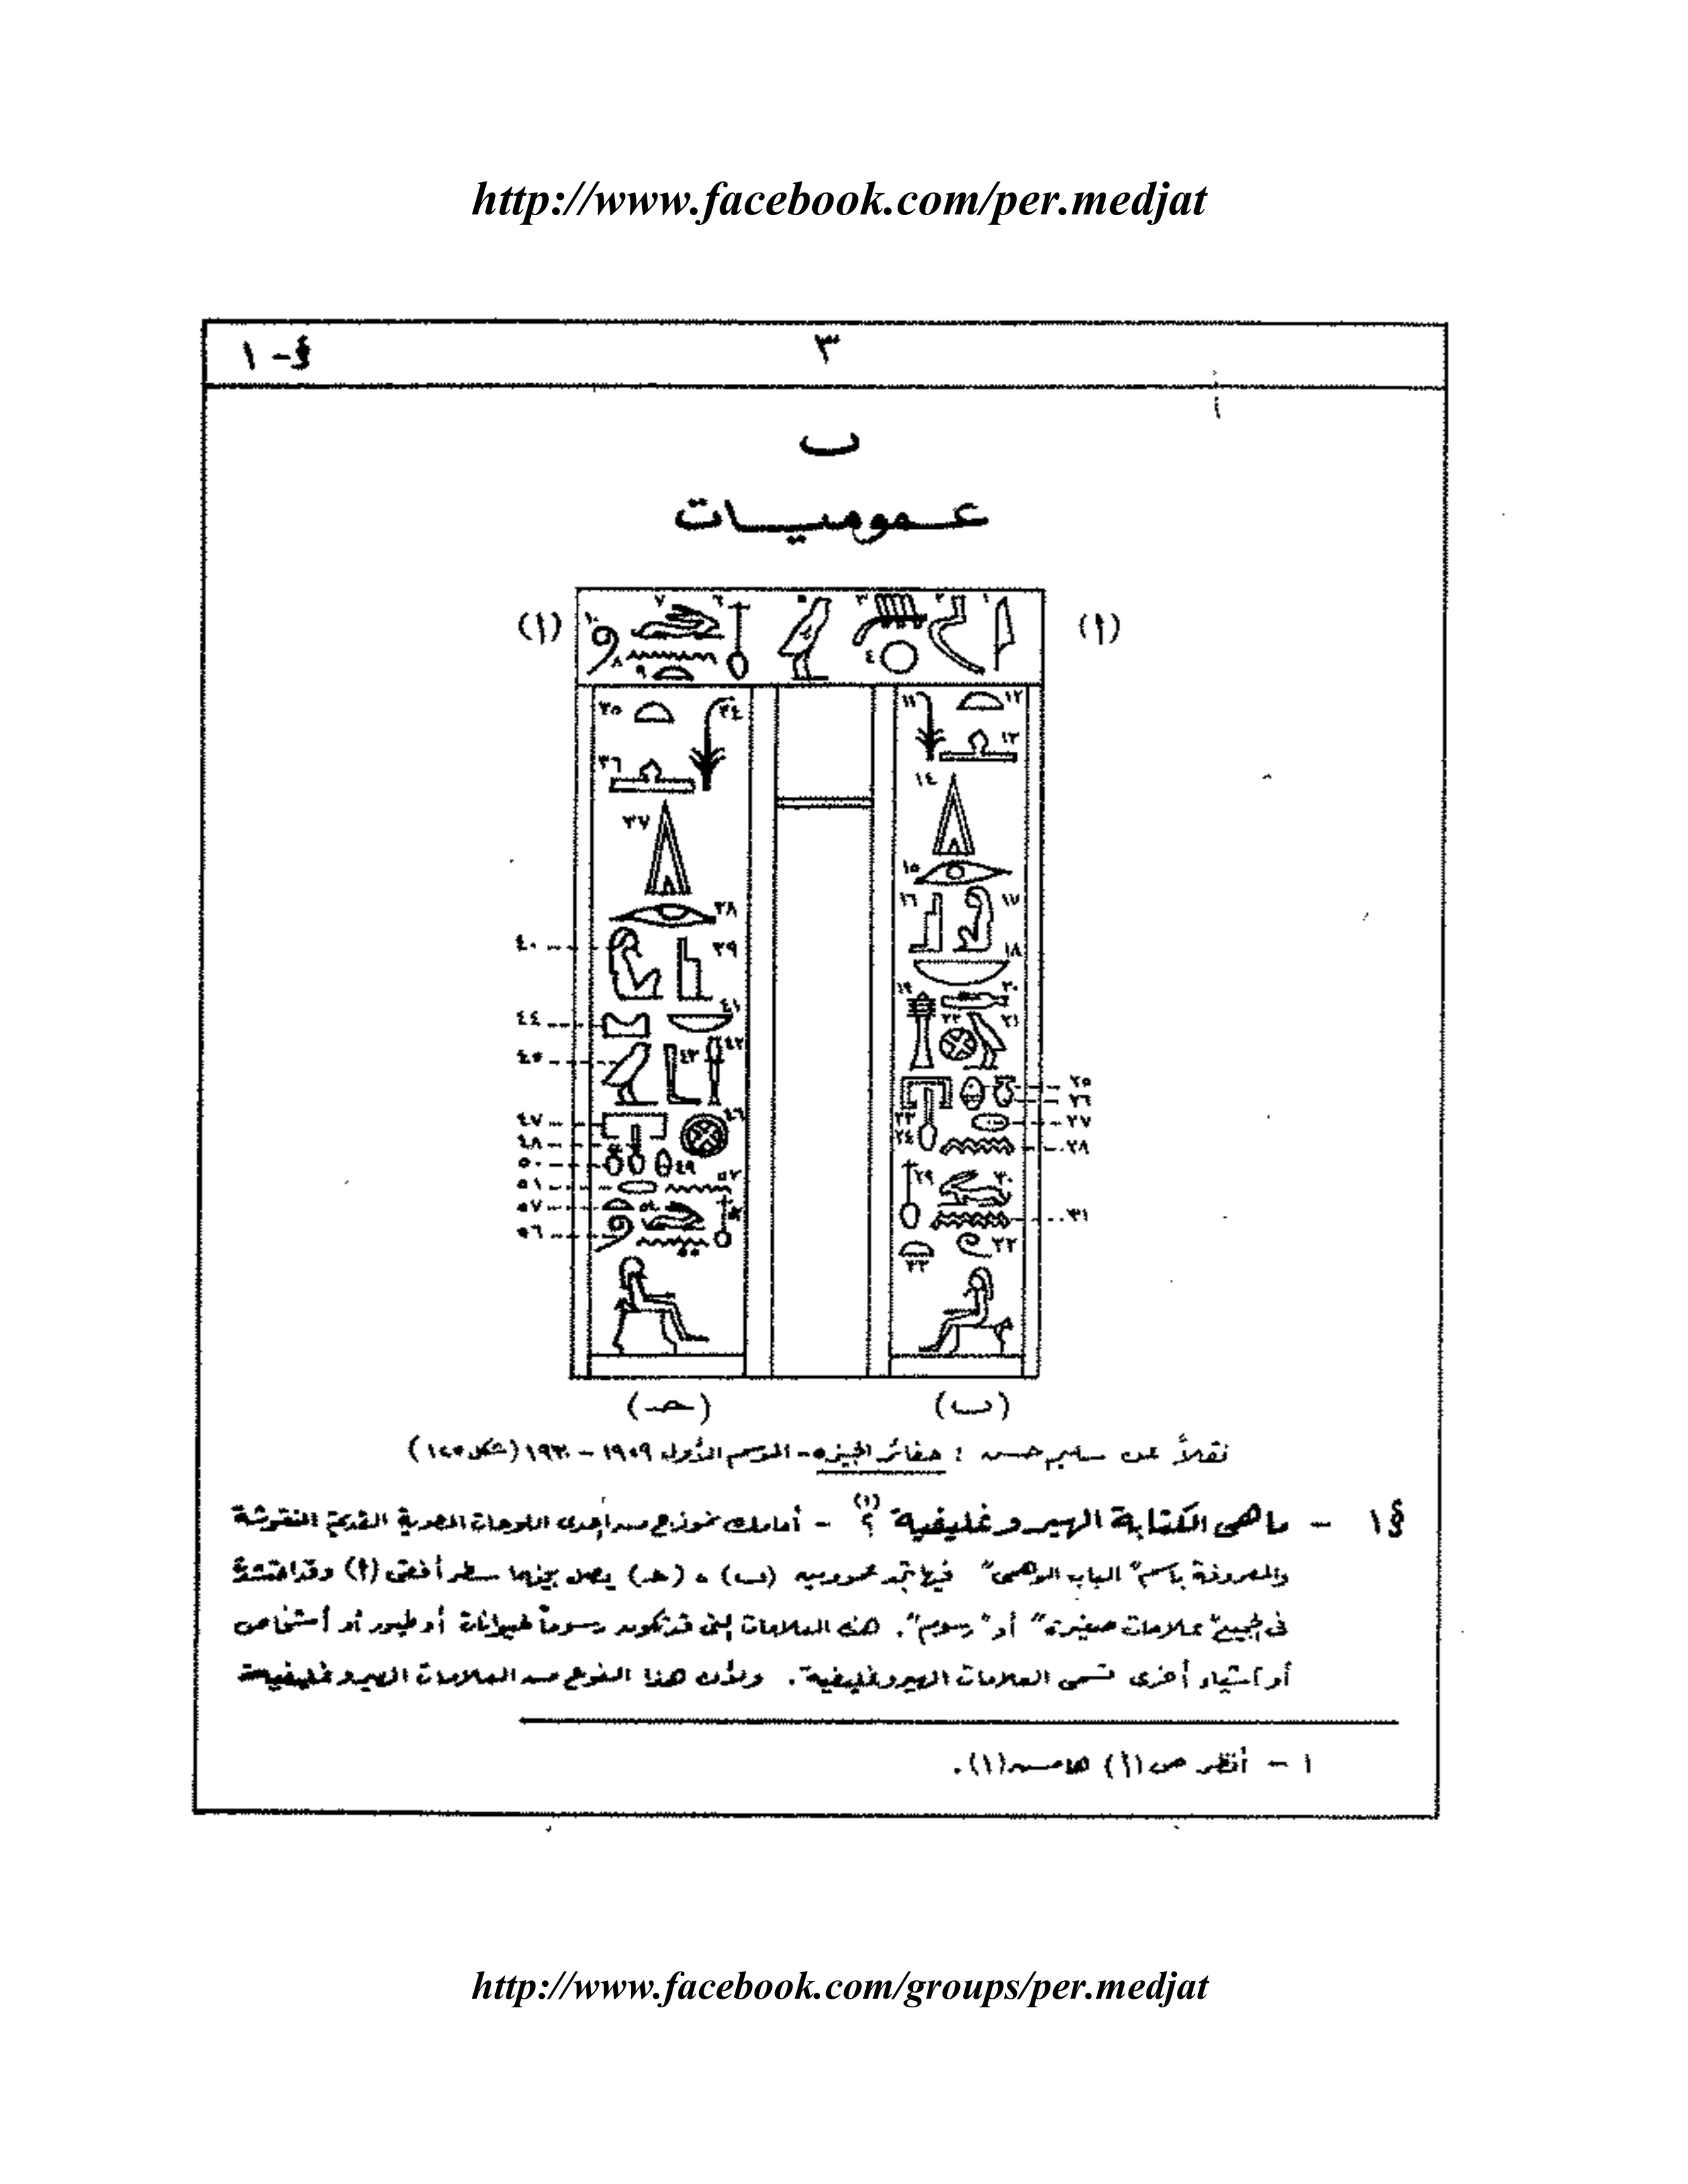 http://www.facebook.com/per.medjat
§ - ١
٣
ب
عموميات
(أ) (أ)
(ب) (حـ)
نقلاً عن سليم حسن : حفائر الجيزة - الموسم الأول ١٩٢٩ - ١٩٣٠ (شكل
§ ١ - ما هى الكتابة الهيروغليفية (١) ؟ - أمامك نموذج من إحدى اللوحات المصرية القديمة المنقوشة
والمعروفة باسم "الباب الوهمى" فيها تجد عمودين (ب) ، (حـ) يصل بينهما سطر أفقى (أ) وقد نقشت
فى الجميع "علامات صغيرة" أو "رسوم". هذه العلامات التى قد تكون رسوماً لحيوانات أو طيور أو أشخاص
أو أشياء أخرى تسمى العلامات الهيروغليفية. ولأن هذا النوع من العلامات الهيروغليفية
١ - أنظر ص (أ) هامش (١).
http://www.facebook.com/groups/per.medjat